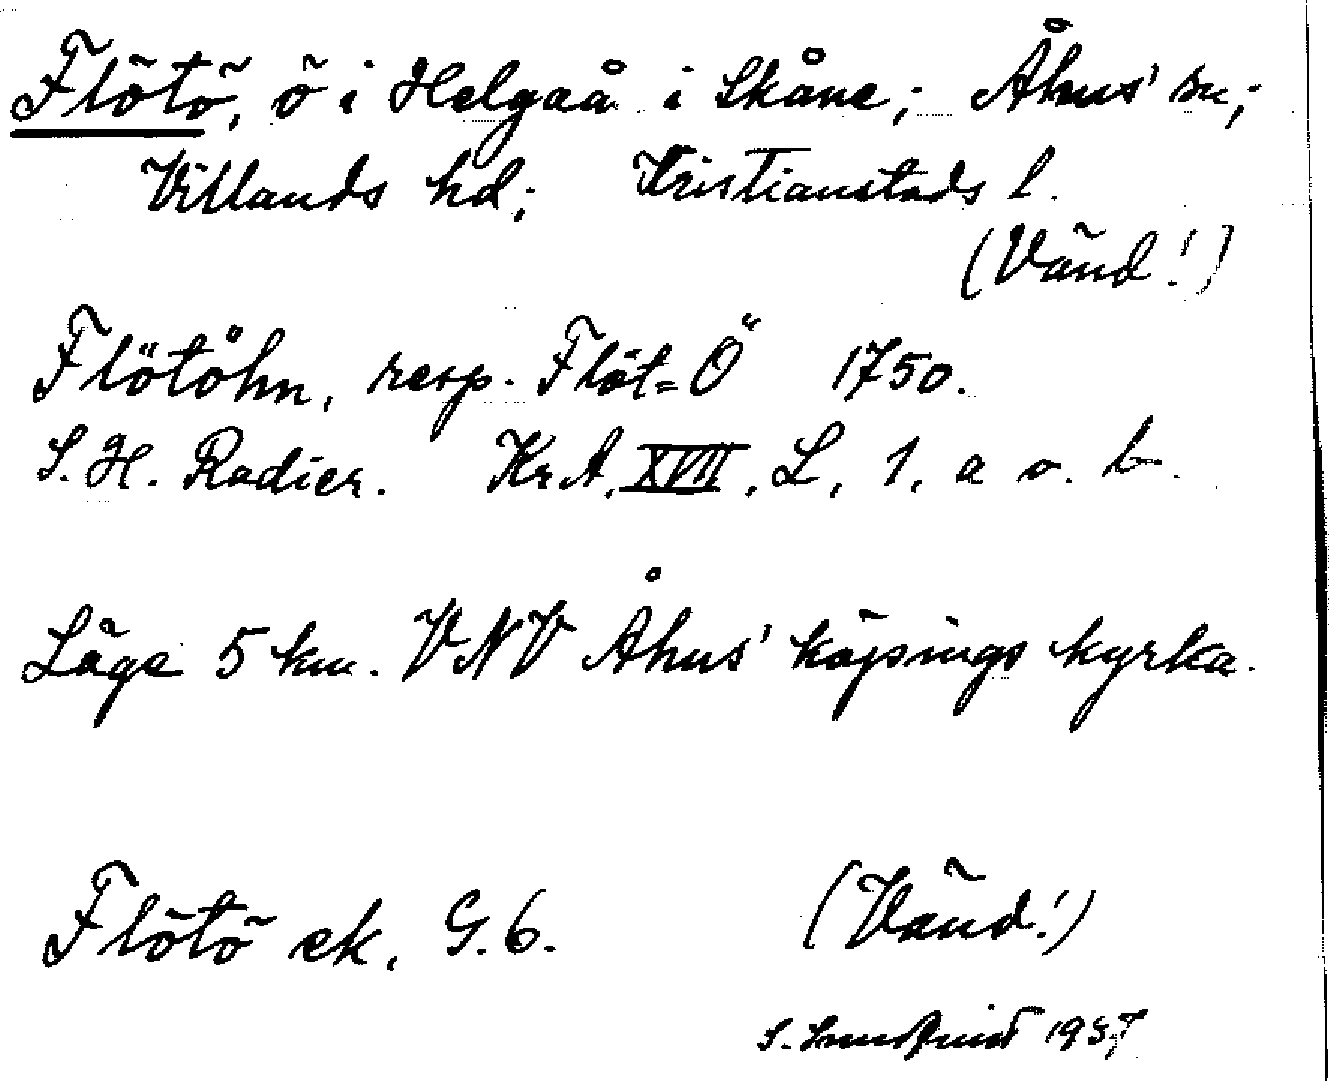 Flötö, ö i Helgaå i Skåne; Åhus' sn;
Villands hd; Kristianstads l.
(Vänd!)
Flötöhn, resp. Flöt=Ö 1750.
S. H. Radier. KrA, XVII, L, 1, a o. b.
Läge 5 km. VNV Åhus' köpings kyrka.
Flötö ek, G. 6.
(Vänd!)
S. 1937